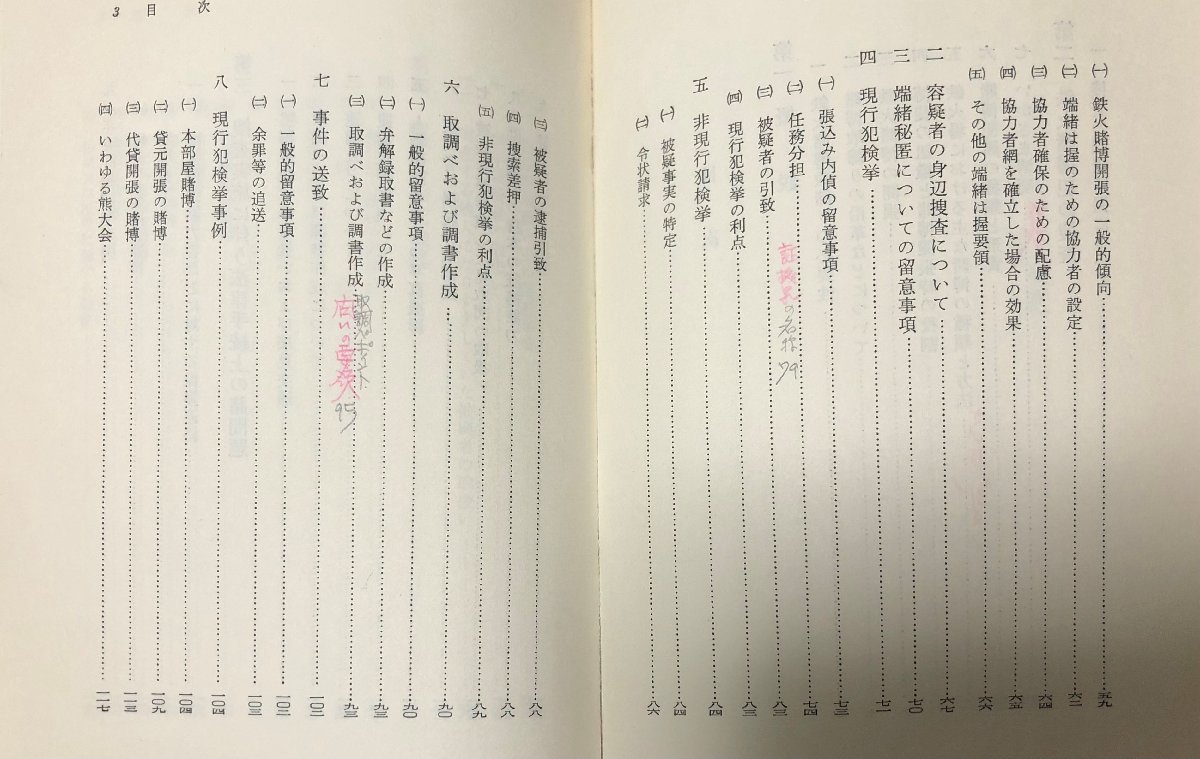 ㈠ 鉄火賭博開張の一般的傾向……五九
㈡ 端緒は握のための協力者の設定……六二
㈢ 協力者確保のための配慮……六四
㈣ 協力者網を確立した場合の効果……六五
㈤ その他の端緒は握要領……六六
二 容疑者の身辺捜査について……六七
三 端緒秘匿についての留意事項……七〇
四 現行犯検挙……七一
㈠ 張込み内偵の留意事項……七三
㈡ 任務分担……七四
の 79
㈢ 被疑者の引致……八三
㈣ 現行犯検挙の利点……八三
五 非現行犯検挙……八四
㈠ 被疑事実の特定……八四
㈡ 令状請求……八六
㈢ 被疑者の逮捕引致……八八
㈣ 捜索差押……八八
㈤ 非現行犯検挙の利点……八九
六 取調べおよび調書作成……九〇
㈠ 一般的留意事項……九〇
㈡ 弁解録取書などの作成……九三
㈢ 取調べおよび調書作成……九三
取調べポイント
の要領 95
七 事件の送致……一〇二
㈠ 一般的留意事項……一〇二
㈡ 余罪等の追送……一〇三
八 現行犯検挙事例……一〇四
㈠ 本部屋賭博……一〇四
㈡ 貸元開張の賭博……一〇九
㈢ 代貸開張の賭博……一一三
㈣ いわゆる熊大会……一一七
3 目 次